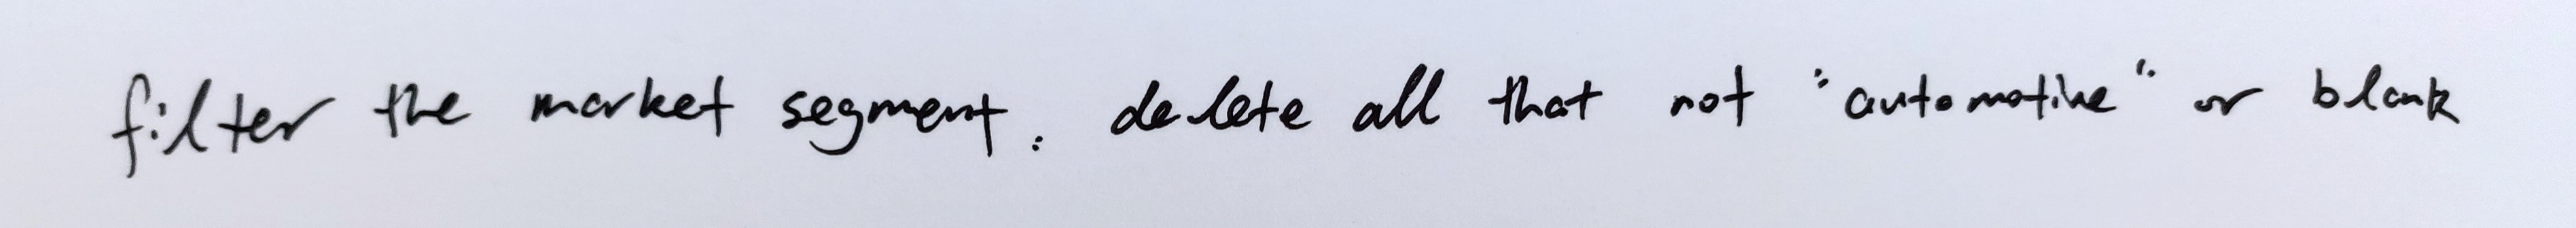 filter the market segment. delete all that not "automotive" or blank